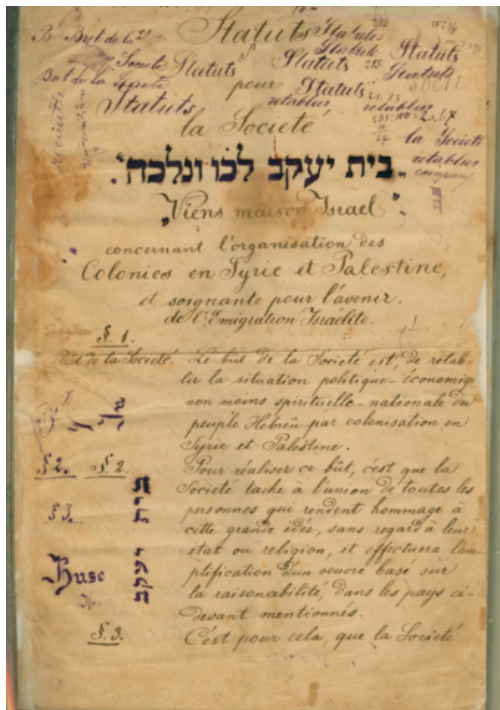 Statuts Statuts
But de la
Statuts Statuts Statuts
Société
pour Statuts
Statuts retablir retablir
la Société la Société
retablir
„בית יעקב לכו ונלכה"
„Viens maison Israel"
concernant l'organisation des
Colonies en Syrie et Palestine,
et soignante pour l'avenir.
de l'Emigration Israélite.
§. 1.
But de la Société. Le bût de la Societé est, de rétab-
lir la situation politique-économiq
non moins spirituelle-nationale du
peuple Hebreû par colonisation en
Syrie et Palestine.
§ 2. §. 2. Pour réaliser ce bût, c'est que la
Société tache à l'union de toutes les
§ 3. personnes qui rendent hommage à
cette grande idée, sans regard à leur
état ou religion, et effectuera l'am-
plification d'un oeuvre basé sur
la raisonabilité, dans les pays ci-
devant mentionnés.
בית יעקב
Buse
§. 3. C'est pour cela, que la Societé